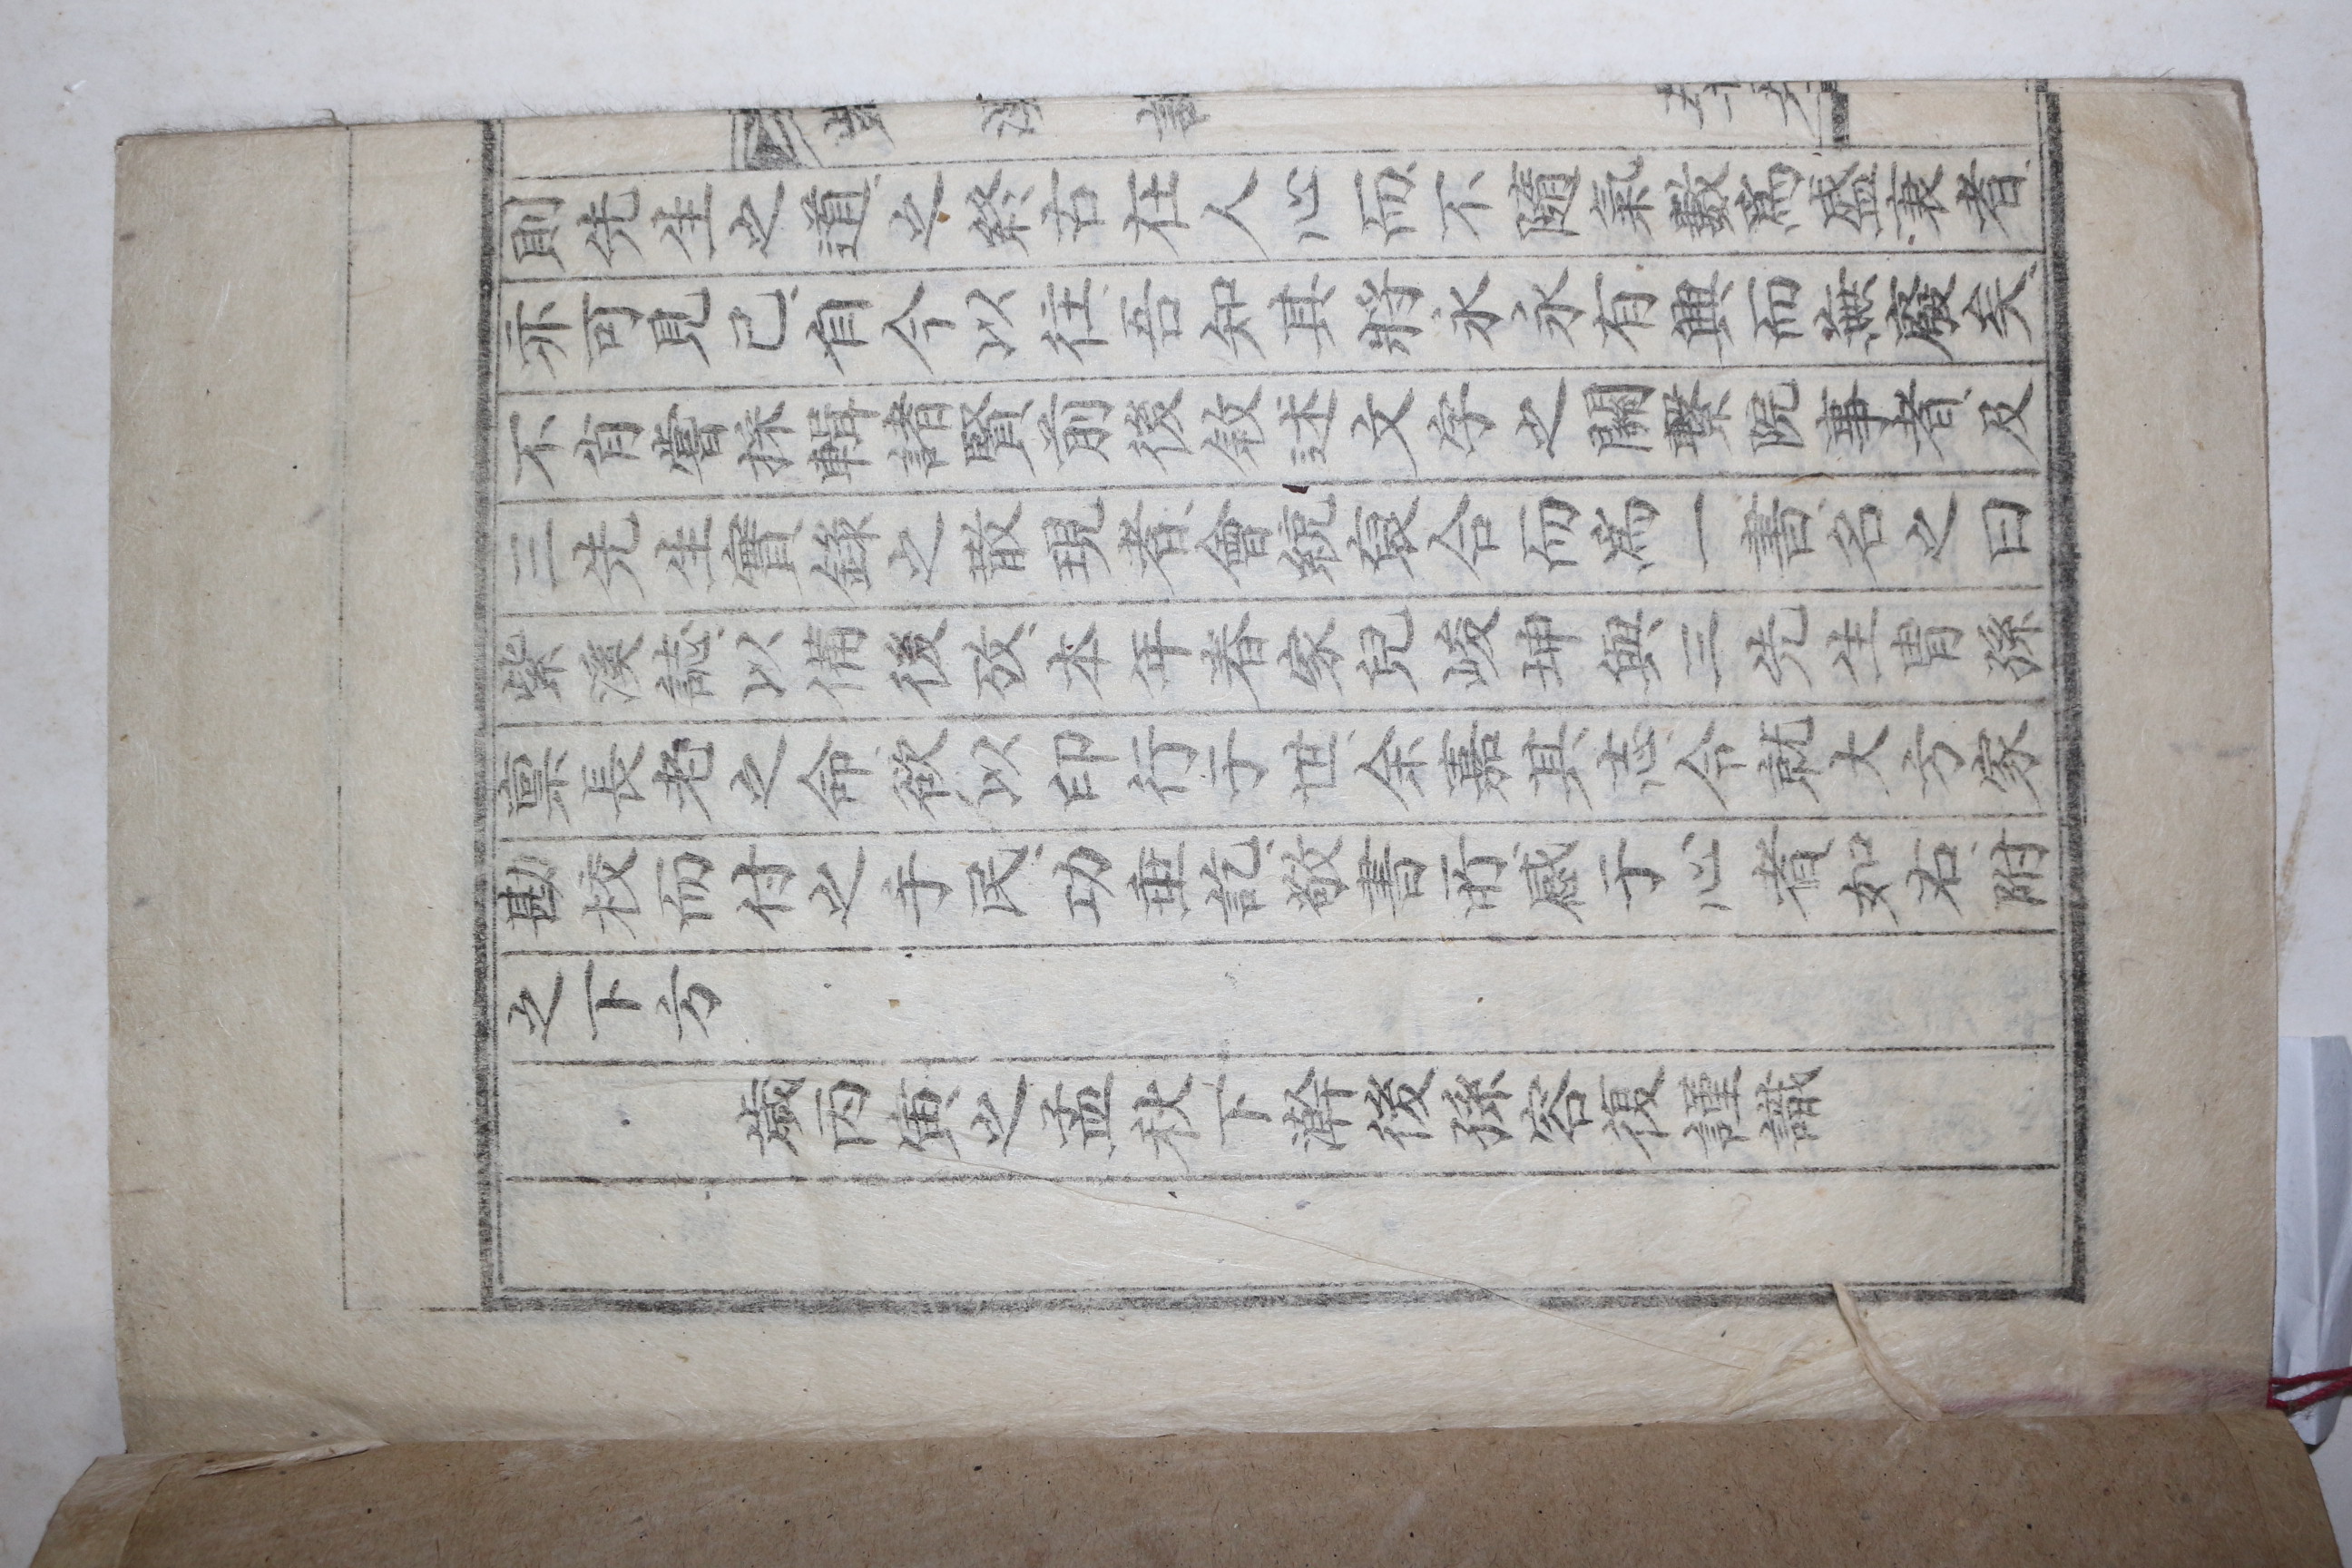 則先生之道、之終古在人心而、不隨氣數爲盛衰者、
亦可見已、自今以往、吾知其將永永有興而無廢矣、
不肖嘗採輯諸賢前後敘述文字之關繫院事者、及
三先生實錄之散現者、會統裒合而爲一書、名之曰
紫溪誌、以備後攷、本年春家兒峻坤與三先生冑孫
稟長老之命、欲以印行于世、余嘉其志、令就大方家
勘校而付之手民、功垂訖、敬書所感于心者、如右、附
之下方
歲丙寅之孟秋下澣後孫容復謹識